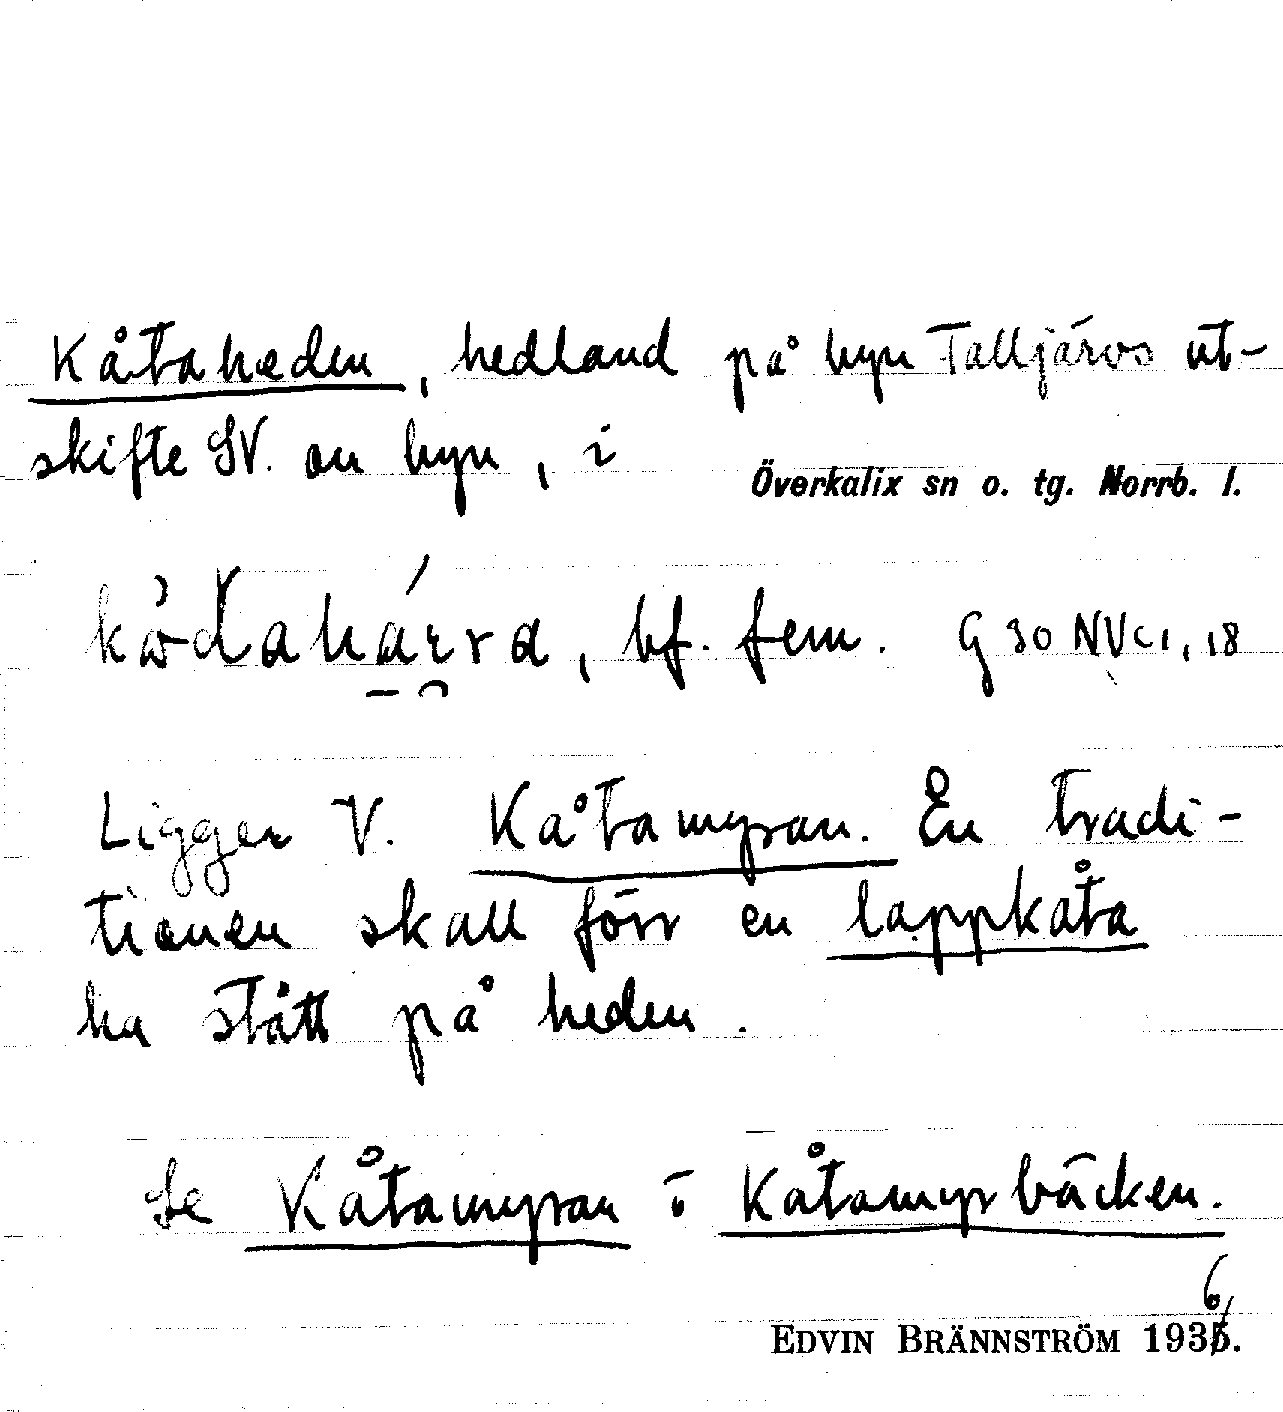 Kåtaheden, hedland på byn Talljärvs ut-
skifte SV. om byn, i
Överkalix sn o. tg. Norrb. l.
bf. fem. G 30 NV c 1, 18
Ligger V. Kåtamyran. En tradi-
tionen skall förr en lappkåta
ha stått på heden.
Se Kåtamyran o Kåtamyrbäcken.
6
EDVIN BRÄNNSTRÖM 1935.